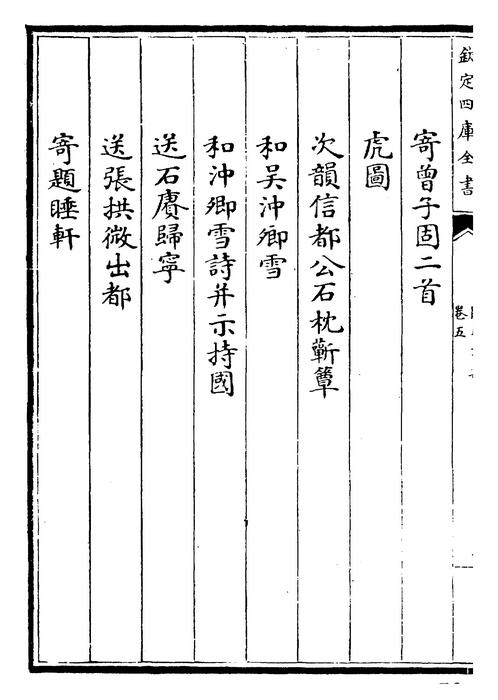 欽定四庫全書
卷五
寄曾子固二首
虎圖
次韻信都公石枕蘄簟
和吴沖卿雪
和沖卿雪詩并示持國
送石賡歸寧
送張拱微出都
寄題睡軒